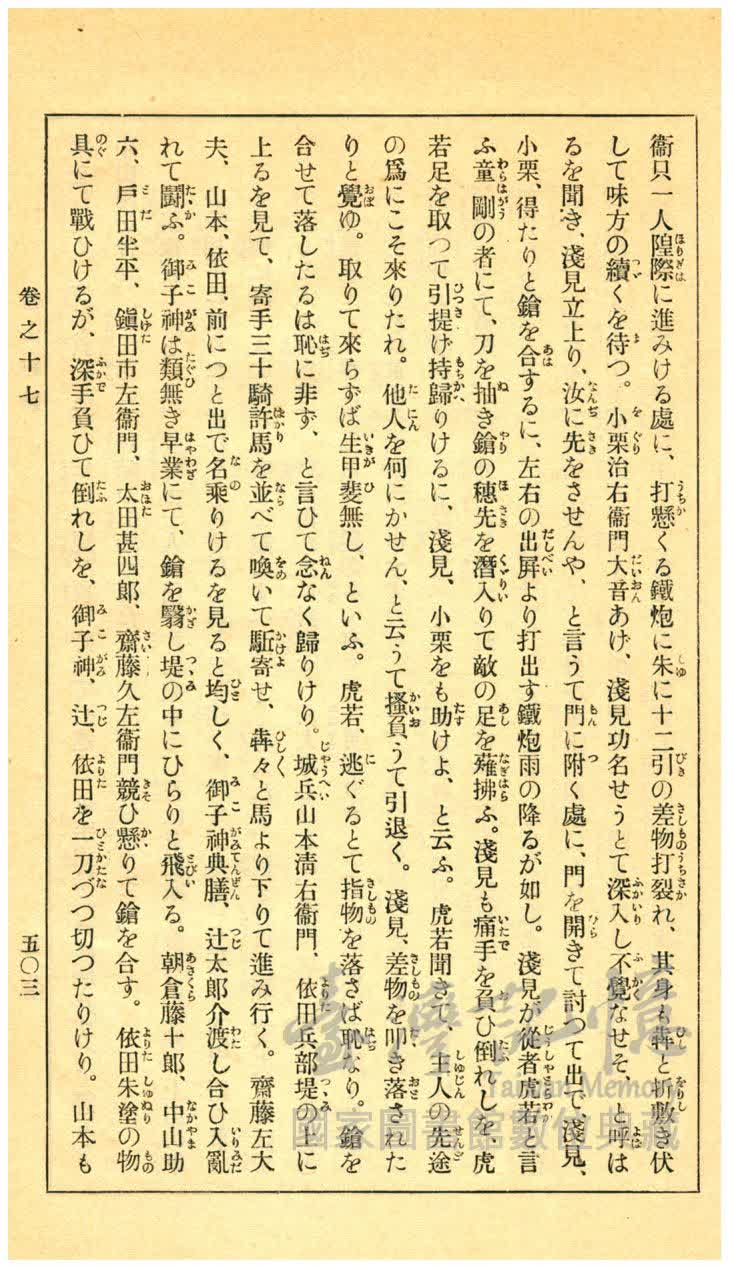 衞只一人隍際に進みける處に、打懸くる鐵炮に朱に十二引の差物打裂れ、其身も犇と折敷き伏
して味方の續くを待つ。小栗治右衞門大音あげ、淺見功名せうとて深入し不覺なせそ、と呼は
るを聞き、淺見立上り、汝に先をさせんや、と言うて門に附く處に、門を開きて討つて出で、淺見、
小栗、得たりと鎗を合するに、左右の出屛より打出す鐵炮雨の降るが如し。淺見が從者虎若と言
ふ童、剛の者にて、刀を抽き鎗の穗先を潛入りて敵の足を薙拂ふ。淺見も痛手を負ひ倒れしを、虎
若足を取つて引提げ持歸りけるに、淺見、小栗をも助けよ、と云ふ。虎若聞きて、主人の先途
の爲にこそ來りたれ。他人を何にかせん、と云うて搔負うて引退く。淺見、差物を叩き落された
りと覺ゆ。取りて來らずば生甲斐無し、といふ。虎若、逃ぐるとて指物を落さば恥なり。鎗を
合せて落したるは恥に非ず、と言ひて念なく歸りけり。城兵山本淸右衞門、依田兵部堤の上に
上るを見て、寄手三十騎許馬を並べて喚いて駈寄せ、犇々と馬より下りて進み行く。齋藤左大
夫、山本、依田、前につと出で名乘りけるを見ると均しく、御子神典膳、辻太郎介渡し合ひ入亂
れて鬪ふ。御子神は類無き早業にて、鎗を翳し堤の中にひらりと飛入る。朝倉藤十郎、中山助
六、戶田半平、鎭田市左衞門、太田甚四郎、齋藤久左衞門競ひ懸りて鎗を合す。依田朱塗の物
具にて戰ひけるが、深手負ひて倒れしを、御子神、辻、依田を一刀づつ切つたりけり。山本も
卷之十七
五〇三
臺灣記憶
Taiwan Memory
國家圖書館數位典藏